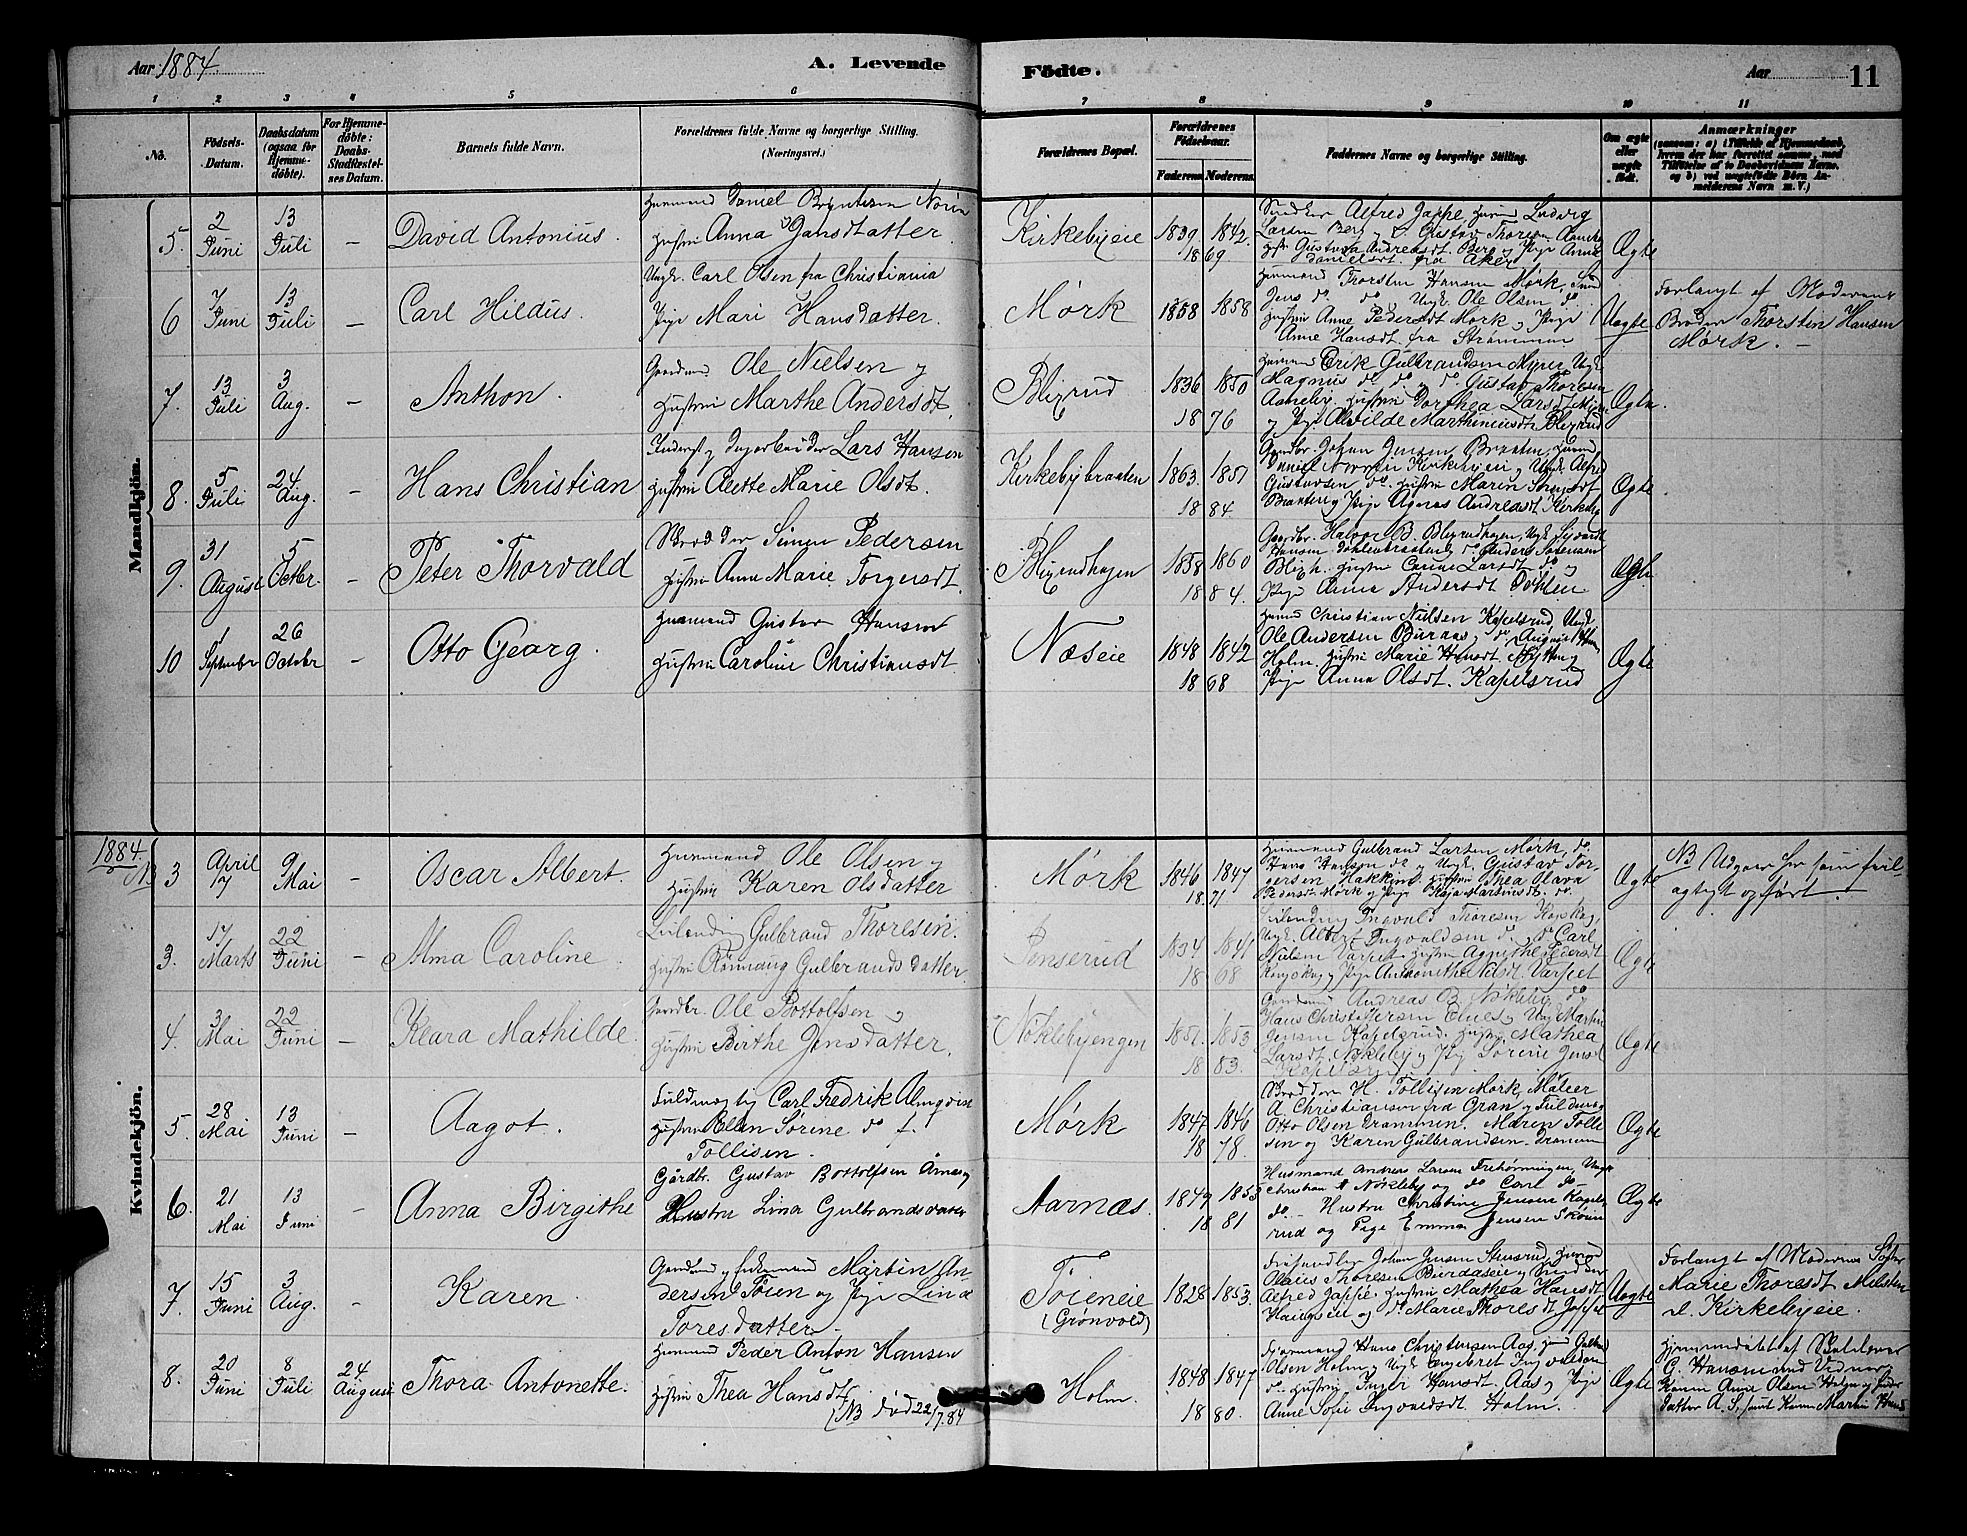 Aar 1884
A. Levende Födte.
Aar 11
1 2 3 4 5 6 7 8 9 10 11
No.
Födsels-
Datum.
Daabsdatum
(ogsaa for
Hjemme-
döbte).
For Hjemme-
döbte:
Daabs-
Stadfæstel-
ses Datum.
Barnets fulde Navn.
Forældrenes fulde Navne og borgerlige Stilling.
(Næringsvei.)
Forældrenes Bopæl.
Forældrenes
Födselsaar.
Faderens. Moderens.
Faddernes Navne og borgerlige Stilling.
Om ægte
eller
uægte
födt.
Anmærkninger
Mandkjön.
5. 2 Juni 13 Juli –
David Antonius.
Daniel
Hustru Anna Jansdatter
Kirkebyeie
1839 1842.
18 69
Alfred Jappe, Ludvig
Larsen Berg og Gustav Thoresen
Gustava Andreasdt. Berg og Pige Anna
Danielsdt. fra Aker
Ægte
6 7 Juni 13 Juli –
Carl Hildus.
Ungk. Carl Olsen fra Christiania
Pige Mari Hansdatter.
Mørk
1858 1858
Thorsten Hansen Mørk,
Jens do. do, Ungk. Ole Olsen do.
Hustru Anne Pedersdt Mørk og Pige
Anne Hansdt. fra Strømmen
Uægte
Forlangt af Moderens
Broder Thorsten Hansen
Mørk. –
7. 13 Juli 3 Aug. –
Anthon.
Ole Nielsen og
Hustru Marthe Andersdt.
Blixrud
1836 1850
18 76
Erik Gulbrandsen Myrer Ungk.
Magnus do do, do. Gustav Thoresen
Aarneby. Hustru Dorthea Larsdt.
og Pige Alvilde Marthiniusdt Blixrud
Ægte.
8. 5 Juli 24. Aug. –
Hans Christian
Inderst og Dagarbeider Lars Hansen
Hustru Olette Marie Olsdt.
Kirkebybraaten
1863. 1851
18 84.
Gaardbr. Johan Jensen Braaten,
Daniel Kirkebyeie og Ungk. Alfred
Gustavsen do. Hustru Maren
Braaten og Pige Agnes Andreasdt. Kirkeby
Ægte
9. 31 August 5 Octbr. –
Peter Thorvald
Skrædder Simen Pedersen
Hustru Anne Marie Torgersdt.
Blixrudhagen
1858 1860
18 84.
Gaardbr. Halvor B. Blixrudhagen, Ungk. Sigvart
Hansen Døhlenbraaten, do. Anders Sørensen
Blixh. Hustru Caroline Larsdt. do og
Pige Anna Andersdt Døhlen
Ægte
10 1 September 26 October –
Otto Georg.
Husmand Gustav Hansen
Hustru Caroline Christiansdt.
Næseie
1848 1842
18 68
Husmd Christian Nilsen Kapelsrud, Ungk.
Ole Andersen Buraas, do. August
Holm. Hustru Marie Hansdt. og
Pige Anna Olsdt. Kapelsrud
Ægte
1884.
Kvindekjön.
NB 3 April 17 9 Mai –
Oscar Albert.
Husmand Ole Olsen og
Hustru Karen Olsdatter
Mørk
1846 1847
18. 71
Husmand Gulbrand Larsen Mørk, do.
Hans Hansen do og Ungk. Gustav Tor-
gersen Hakkim. Hustru Thea Olava
Pedersdt. Mørk og Pige Kaja Martinsdt. do.
Ægte
NB Udgaar her som feil
agtigt opført.
3. 17 Marts 22 Juni –
Alma Caroline.
Leilending Gulbrand Thoresen.
Hustru Rønnaug Gulbrandsdatter
Jenserud
1834 1841
18 68
Leilending Ingvald Thoresen
Ungk. Albert Ingvaldsen do. do Carl
Nielsen Varpet. Hustru Agnethe Pedersdt
og Pige Antonethe Nilsdt. Varpet
Ægte
4. 3 Mai 22 Juni –
Klara Mathilde.
Gaardbr. Ole Bottolfsen og
Hustru Birthe Jensdatter.
Nøklebyengen
1851. 1853
18 83.
Andreas B. Nøkleby, do
Hans Christoffersen og Ungk Martin
Jensen Kapelsrud. Hustru Mathea
Larsdt. Nøkleby og Pige Sørine Jensdt
Kapelsrud
Ægte
5. 28 Mai 13 Juni –
Aagot.
Fuldmægtig Carl Fredrik Almqvist
Hustru Ellen Sørine do f.
Tollisen.
Mørk
1847 1846
18 78.
H. Tollisen Mørk, Maler
A. Christiansen fra Gran og
Otto Olsen Drammen. Maren Tolli-
sen og Karen Gulbrandsen Drammen
Ægte
6. 21 Mai 13 Juni –
Anna Birgithe
Gårdbr. Gustav Bottolfsen Årnæs og
Hustru Lina Gulbrandsdatter
Aarnæs.
1849 1853
18 81
Husmand Andreas Larsen Frihørningen, Ungk.
Christian Nøkleby og do Carl do –
do – Hustru Christine Jensen Kapels-
rud og Pige Emma Jensen Skøien
Ægte
7. 15 Juni 3 Aug. –
Karen.
Gaardmd og Enkemand Martin An-
dersen Toien og Pige Lina
Toresdatter –
Toieneie
(Grønvold)
1828 1853.
Johan Jensen Stensrud,
Olaus Thoresen Burdaseie og Snedker
Alfred Jappe. Hustru Mathea Hansdt
Haugseie og do Marie Thoresdt Jappe
Uægte
Forlangt af Moderens Søster
Marie Thoresdt.
Kirkebyeie.
8. 20 Juni 8 Juli 24. August
Thora Antonette.
Husmand Peder Anton Hansen
Hustru Thea Hansdt.
(NB død 22/7.84
Holm.
1848 1847
18 80.
Hans Christensen Aas,
Olsen Holm og Ungk Engebret Ingvaldsen
do. Hustru Inger Hansdt. Aas og Pige
Anne Sofie Ingvaldsdt Holm.
Ægte
Hjemmedøbt af Skolelærer
G. Hansen med Vidner
Anne Olsen Holm og
datter A. S. samt Karen